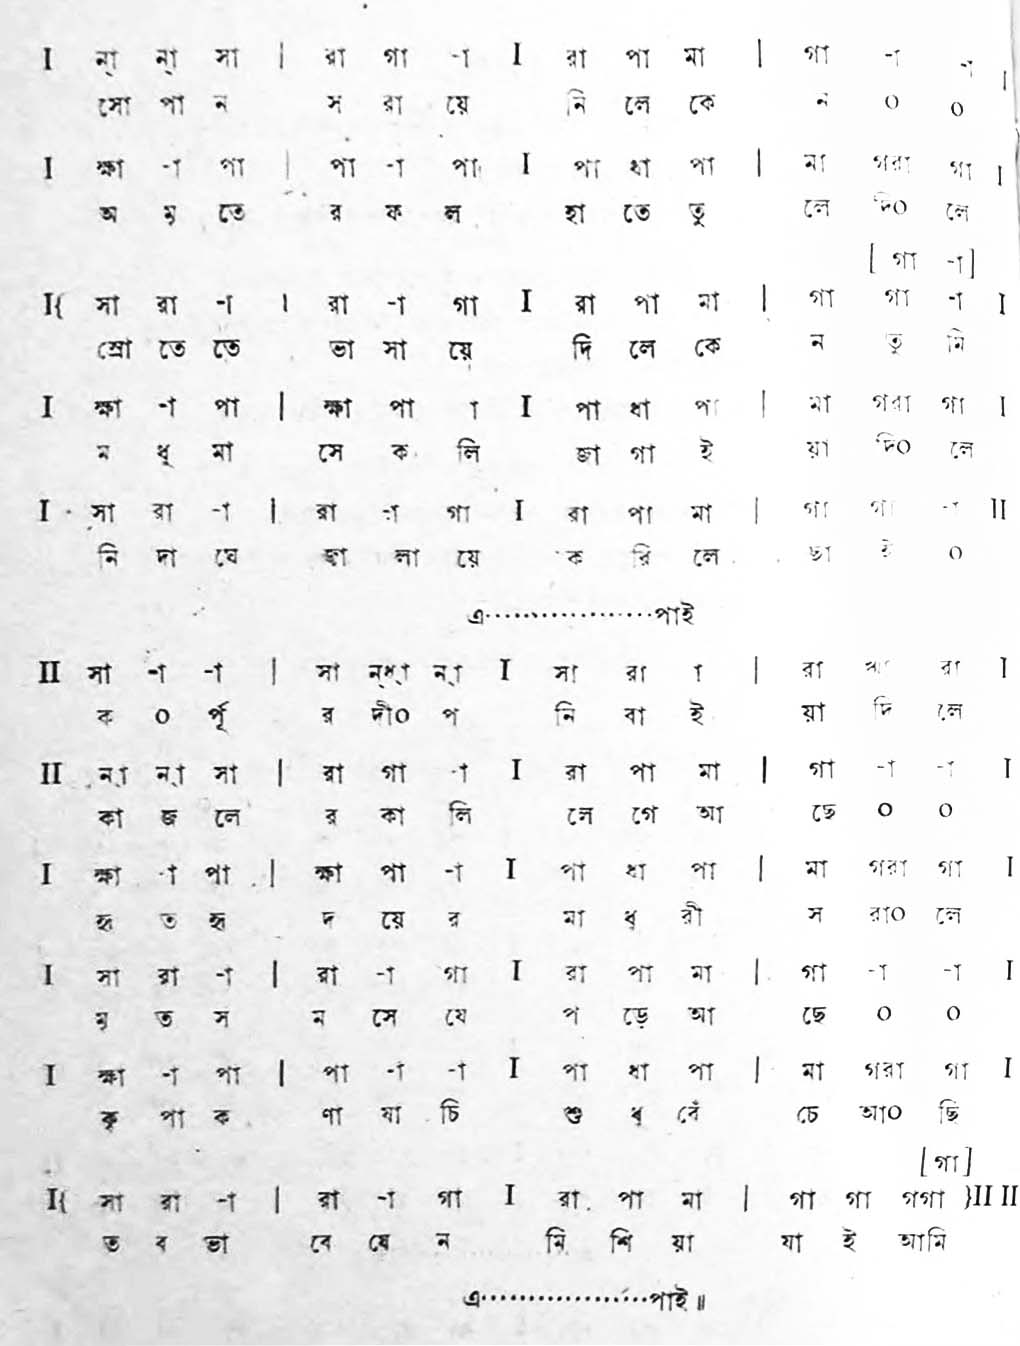 I ন্া ন্া সা | রা গা -া I রা পা মা | গা -া -া I
সো পা ন স রা য়ে নি লে কে ন ০ ০
I ক্ষা -া পা | পা -া পা I পা ধা পা | মা গরা গা I
অ মৃ তে র ফ ল হা তে তু লে দি০ লে
[ গা -া]
I{ সা রা -া | রা -া গা I রা পা মা | গা গা -া I
স্রো তে তে ভা সা য়ে দি লে কে ন তু মি
I ক্ষা -া পা | ক্ষা পা া I পা ধা পা | মা গরা গা I
ম ধু মা সে ক লি জা গা ই য়া দি০ লে
I সা রা -া | রা -া গা I রা পা মা | গা গা -া II
নি দা ঘে জ্বা লা য়ে ক রি লে ছা ই ০
এ··················পাই
II সা -া -া | সা ন্ধ্া ন্া I সা রা া | রা রা I
ক ০ র্পূ র দী০ প নি বা ই য়া দি লে
II ন্া ন্া সা | রা গা -া I রা পা মা | গা -া -া I
কা জ লে র কা লি লে গে আ ছে ০ ০
I ক্ষা -া পা | ক্ষা পা -া I পা ধা পা | মা গরা গা I
হৃ ত হৃ দ য়ে র মা ধু রী স রা০ লে
I সা রা -া | রা -া গা I রা পা মা | গা -া -া I
মৃ ত স ম সে যে প ড়ে আ ছে ০ ০
I ক্ষা -া পা | পা -া -া I পা ধা পা | মা গরা গা I
কৃ পা ক ণা যা চি শু ধু বেঁ চে আ০ ছি
[গা]
I{ সা রা -া | রা -া গা I রা পা মা | গা গা গগা }II II
ত ব ভা বে যে ন মি শি য়া যা ই আমি
এ··················পাই॥